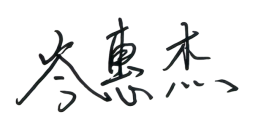 岑惠杰